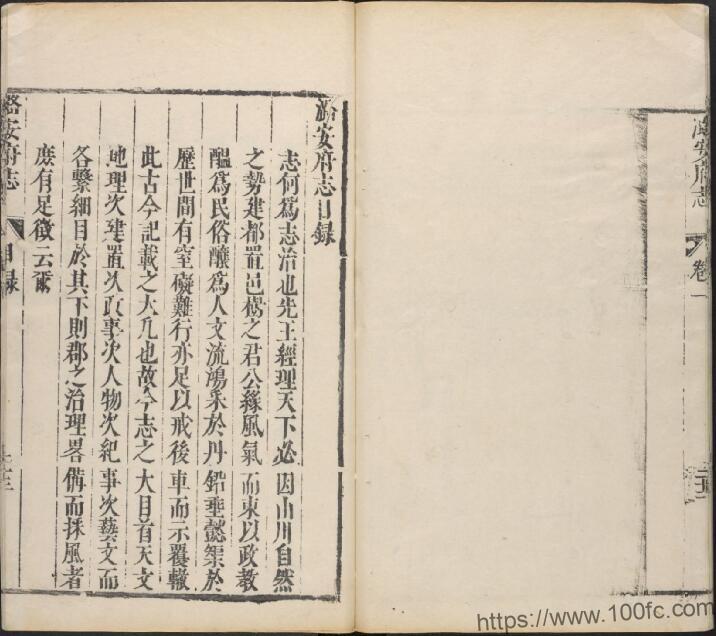 潞安府志
卷一
潞安府志目録
志何爲志治也先王經理天下必因山川自然
之勢建都置邑樹之君公緣風氣而束以政教
醞爲民俗釀爲人文流鴻采於丹鉛垂懿榘於
歷世間有窒礙難行亦足以戒後車而示覆轍
此古今記載之大凡也故今志之大目首天文
地理次建置次政事次人物次紀事次藝文而
各繫細目於其下則郡之治理畧備而採風者
庶有足徵云爾
潞安府志
目録
https://www.100fc.com